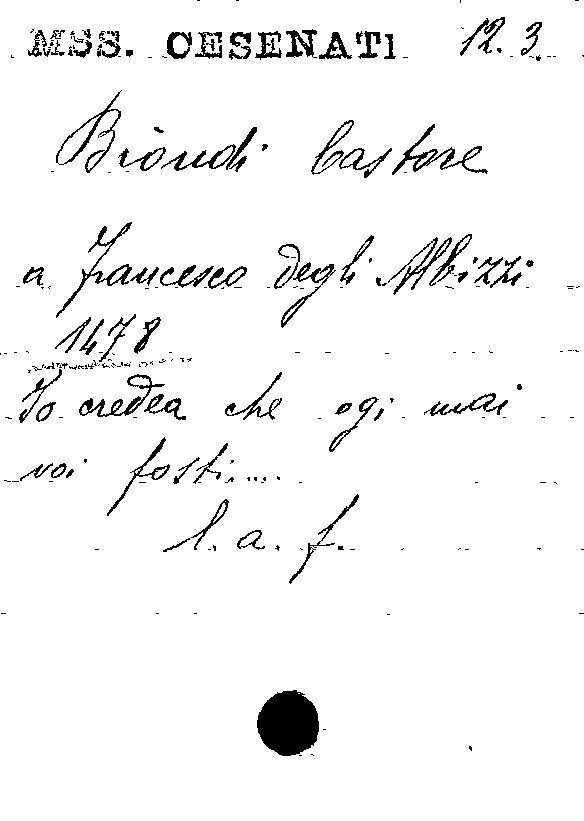 MSS. CESENATI 12.3.
Biondi Castore
a Francesco degli Albizzi
1478
Io credea che ogi mai
voi fosti....
l. a. f.